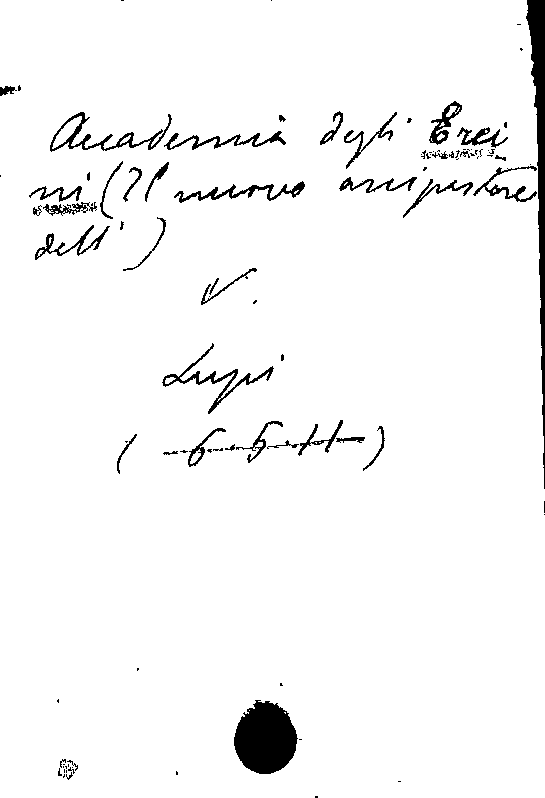 Accademia degli Erci
ni (Il nuovo arcipastore
dell')
V.
Lupi
( 6 5 11 )